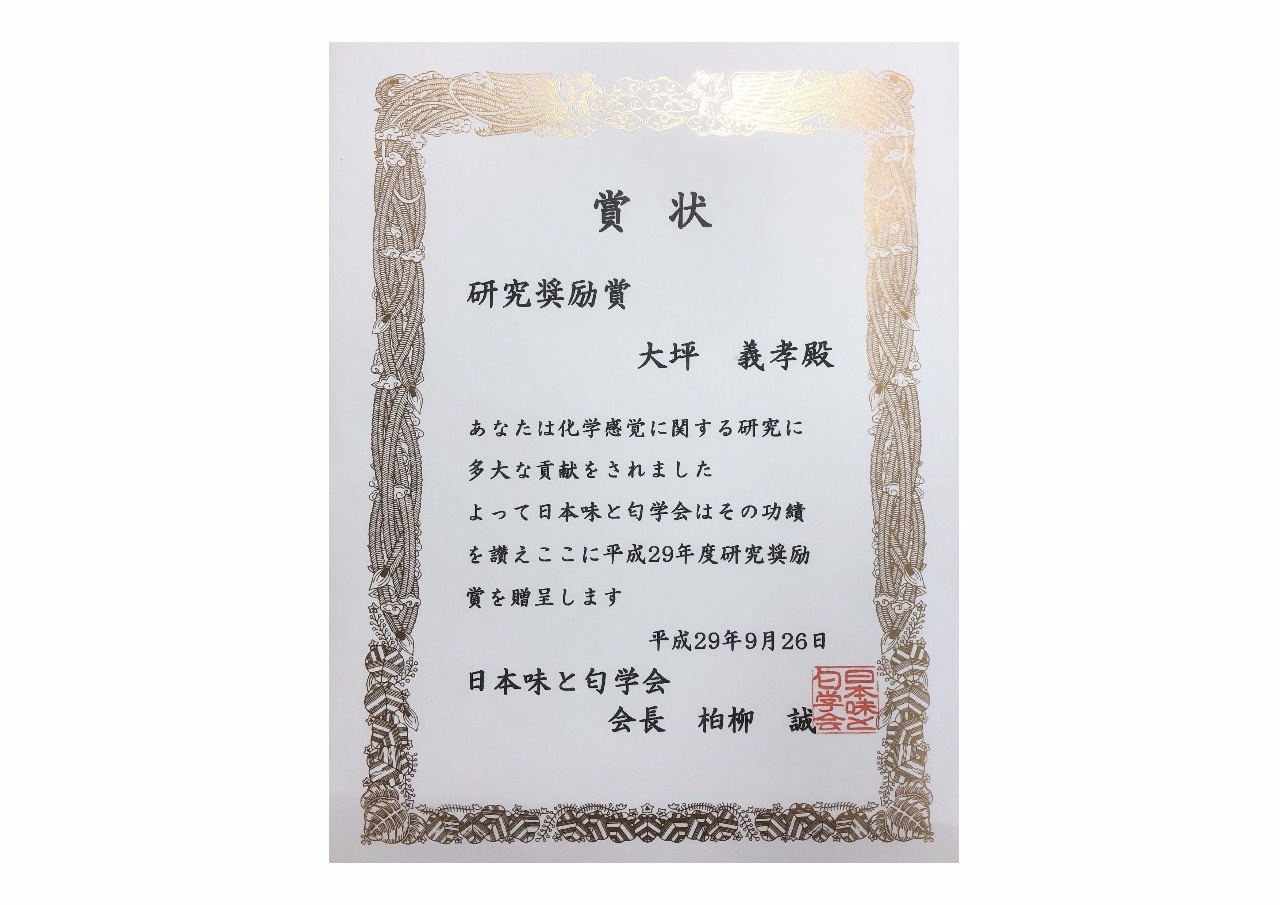 賞 状
研究奨励賞
大坪 義孝殿
あなたは化学感覚に関する研究に
多大な貢献をされました
よって日本味と匂学会はその功績
を讃えここに平成29年度研究奨励
賞を贈呈します
平成29年9月26日
日本味と匂学会
会長 柏柳 誠
日本味と
匂学会